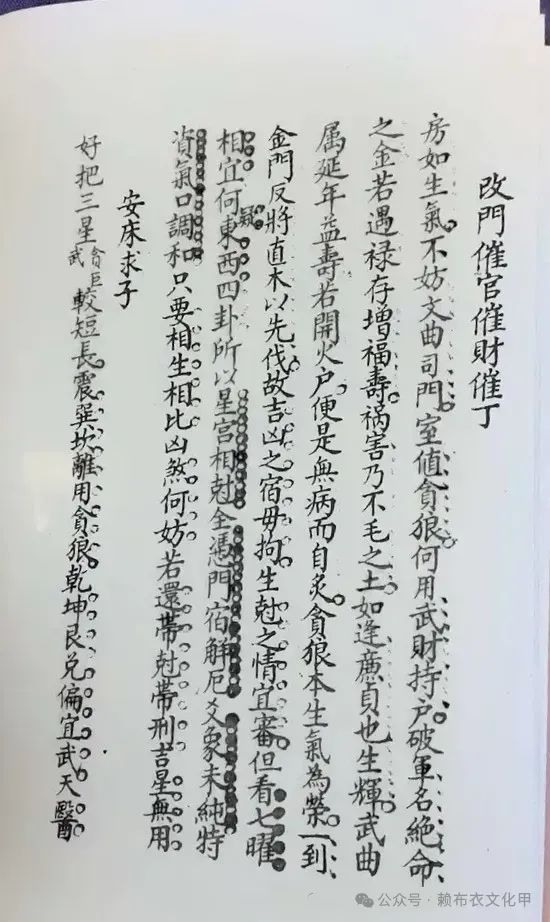 改門催官催財催丁
房如生氣不妨文曲司門室值貪狼何用武財持戶破軍名絕命
之金若遇祿存增福壽禍害乃不毛之土如逢廉貞也生輝武曲
属延年益壽若開火戶便是無病而自炙貪狼本生氣為榮一到
金門反將直木以先伐故吉凶之宿毋拘生尅之情宜審但看七曜
相宜何疑東西四卦所以星宮相尅全憑門宿解厄爻象未純特
資氣口調和只要相生相比凶煞何妨若還帶尅帶刑吉星無用
安床求子
好把三星貪巨武較短長震巽坎離用貪狼乾坤艮兑偏宜武天醫
公众号·赖布衣文化甲